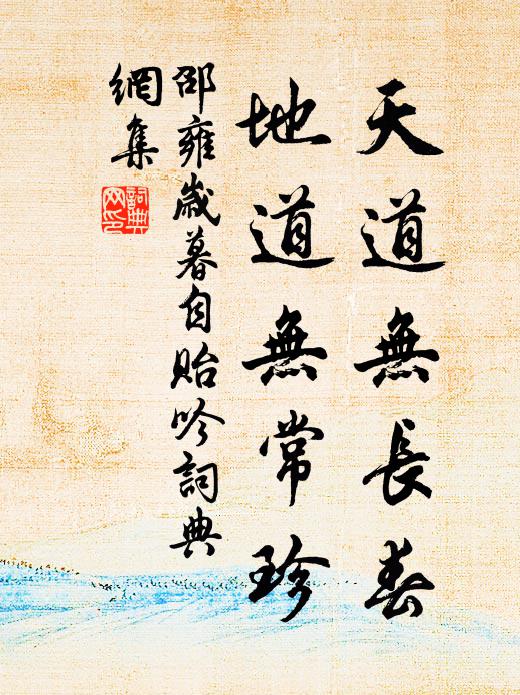 天道無長春
地道無常珍
邵雍歲暮自貽吟詞典
網集
詞典
網印